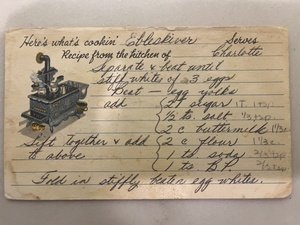 Here's what's cookin' Ebleskiver Serves
Recipe from the kitchen of Charlotte
Separate & beat until
stiff whites of 3 eggs
Beat — egg yolks
add 2 T sugar 1 T.
1/2 ts. salt 1/3 tsp
2 c buttermilk 1 1/3 c
Sift together & add 2 c flour 1 1/3 c
to above 1 ts. soda 2/3 tsp
1 ts B.P. 2/3 tsp
Fold in stiffly beaten egg whites.